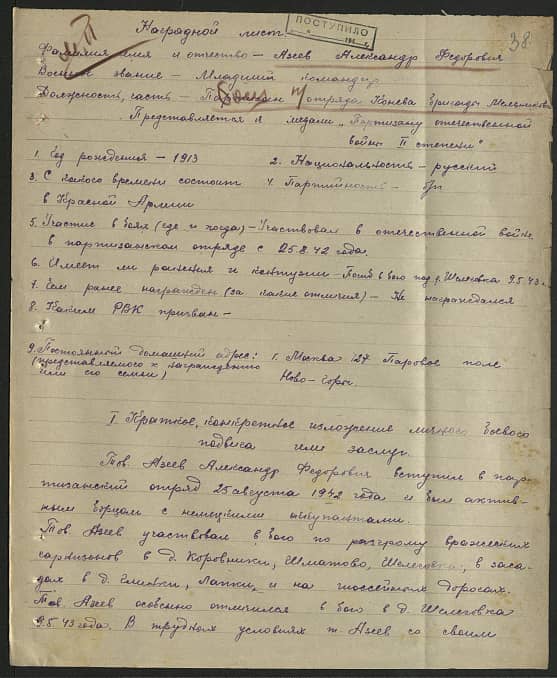 ПОСТУПИЛО
38
Наградной лист.
Фамилия имя и отчество – Азеев Александр Федорович
Воинск. звание – Младший командир
Должность, часть – Партизан боец п/отряда Конева бригады
Представляется к медали „Партизану отечественной
войны II степени"
1. Год рождения – 1913
2. Национальность – русский
3. С какого времени состоит
в Красной Армии
4. Партийность – б/п
5. Участие в боях (где и когда) – Участвовал в отечественной войне
в партизанском отряде с 25.8.42 года.
6. Имеет ли ранения и контузии – в бою под д. Шелеговка 9.5.43 г.
7. Чем ранее награжден (за какие отличия) – Не награждался
8. Каким РВК призван –
9. Постоянный домашний адрес:
(представляемого к награждению
или его семьи)
г. Москва 127 Паровое поле
Ново-горы.
I. Краткое, конкретное изложение личного боевого
подвига или заслуг.
Тов. Азеев Александр Федорович вступил в пар-
тизанский отряд 25 августа 1942 года и был актив-
ным борцом с немецкими оккупантами.
Тов. Азеев участвовал в бою по разгрому вражеских
гарнизонов в д. Коровники, Шматово, Шелеговка, в заса-
дах в д. Глинки, Лапки, и на шоссейных дорогах.
Тов. Азеев особенно отличился в бою в д. Шелеговка
9.5.43 года. В трудных условиях т. Азеев со своим